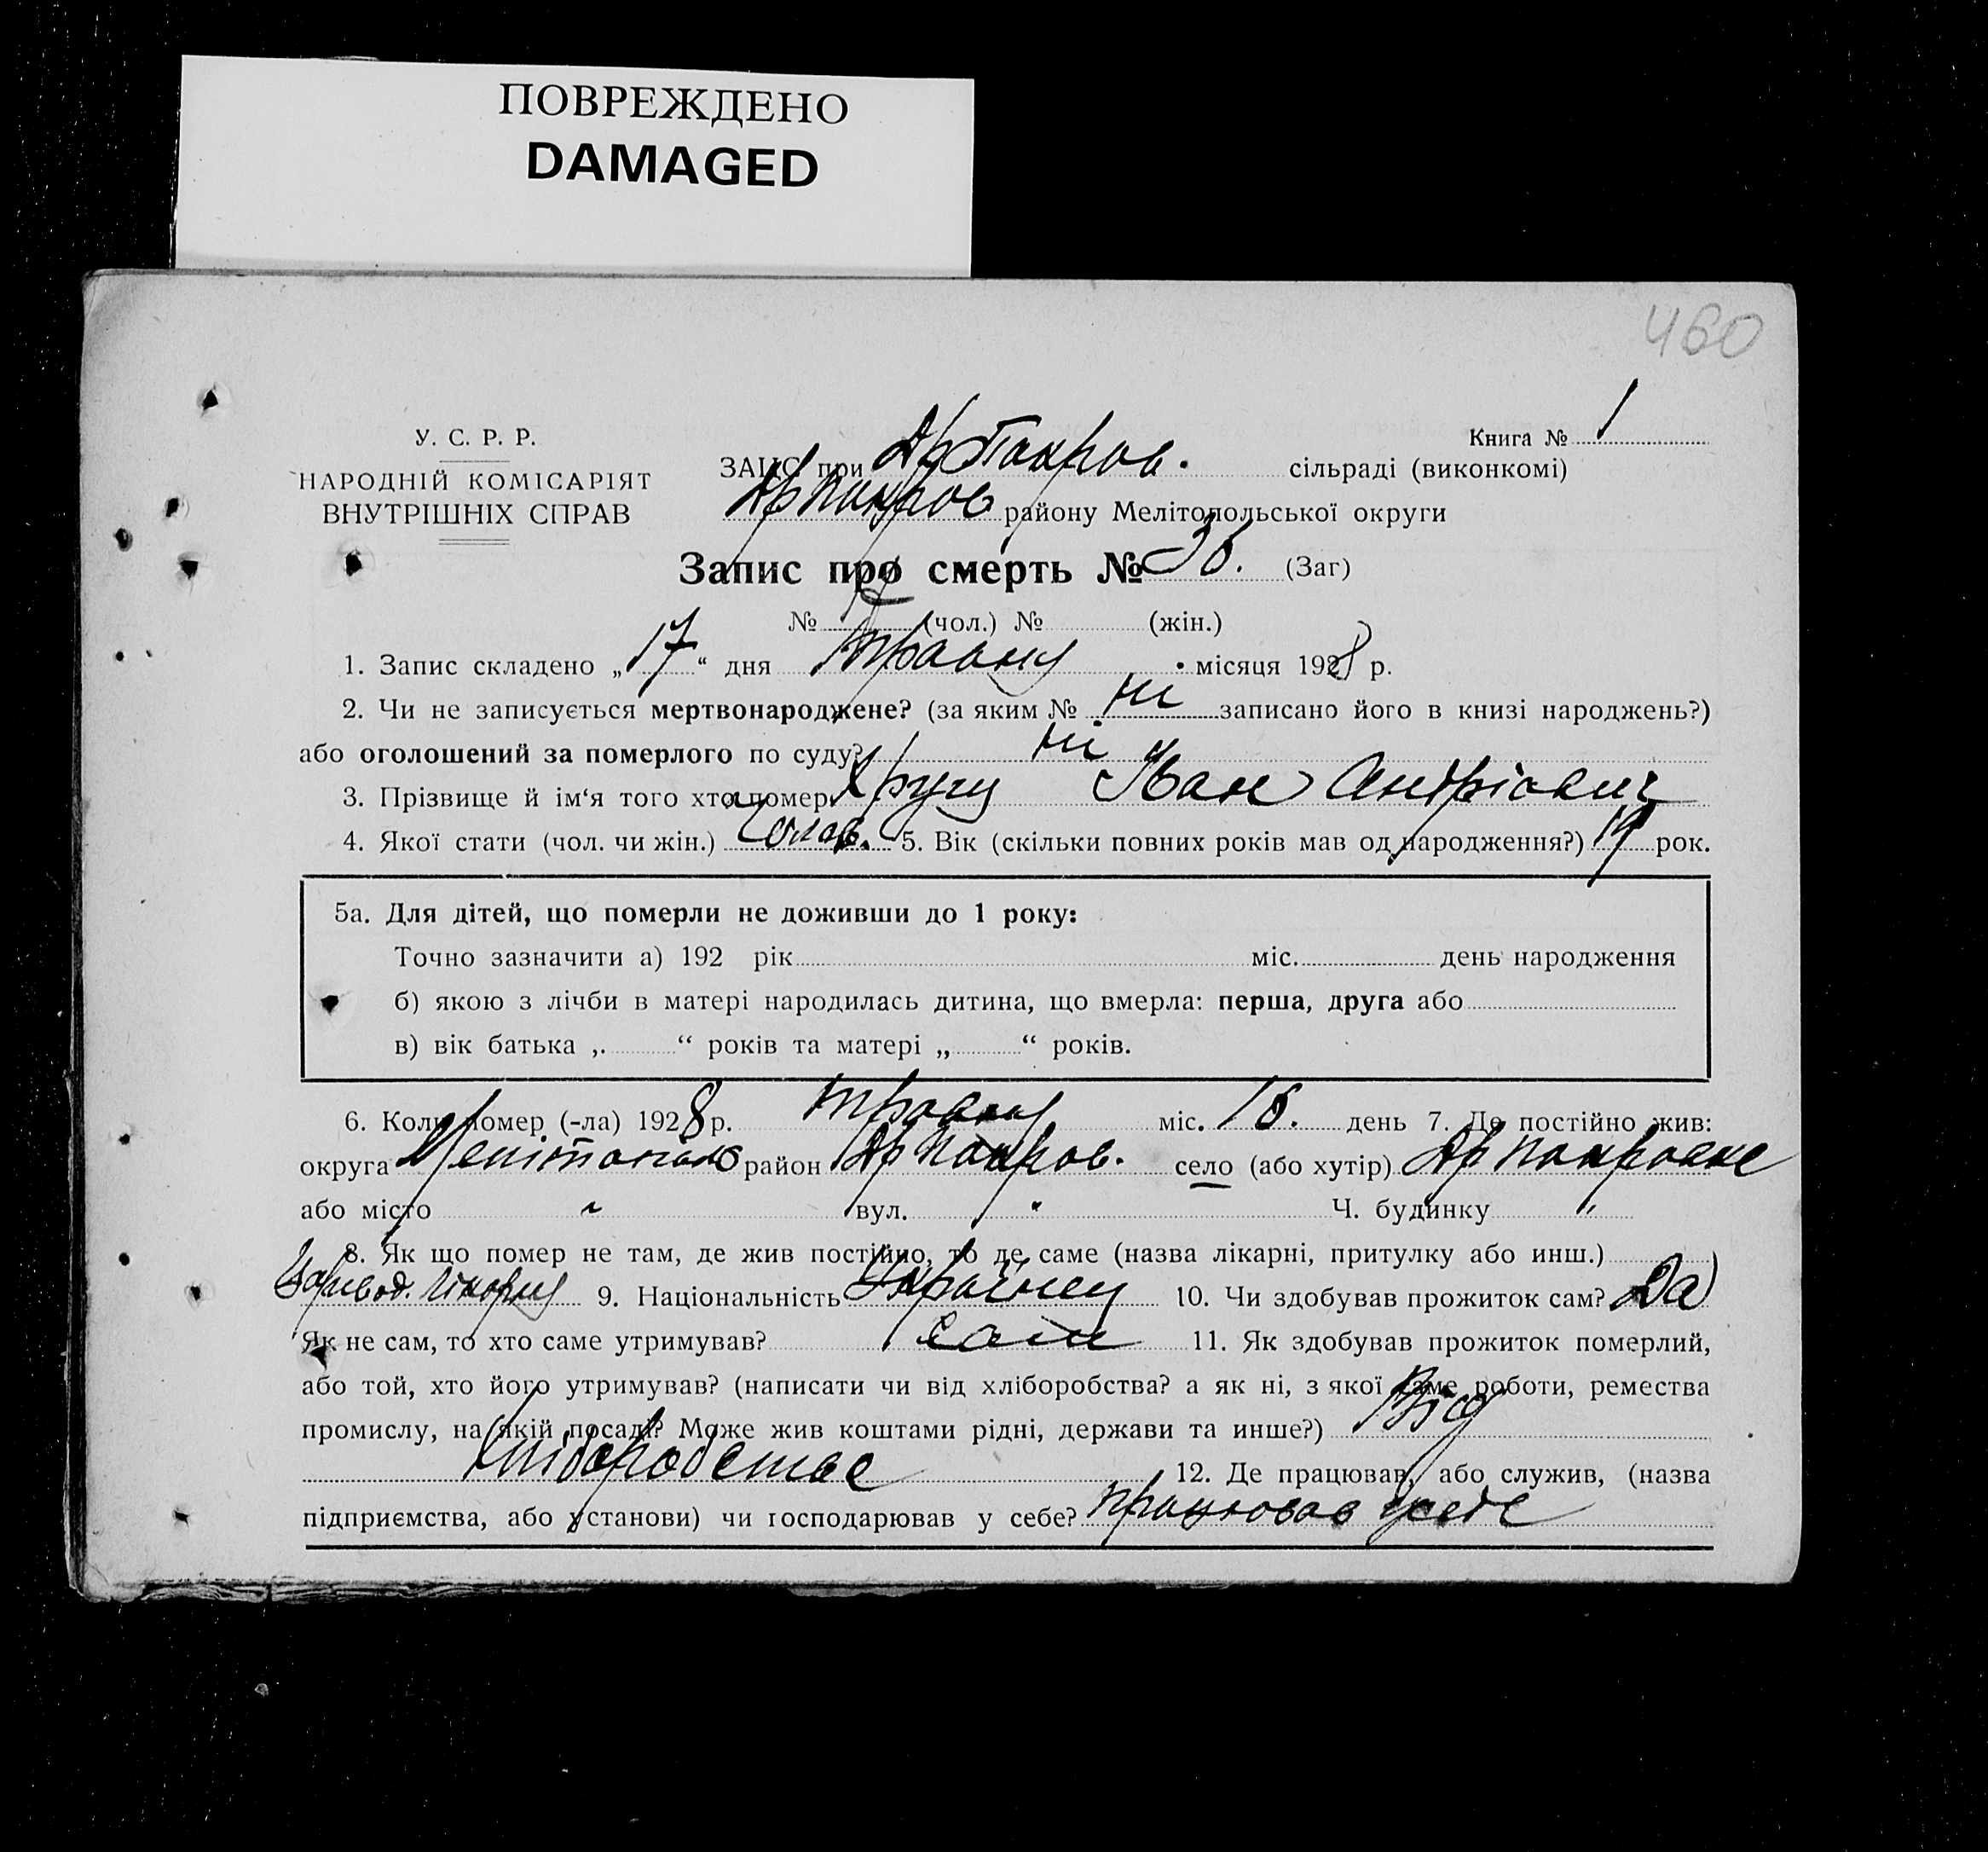 ПОВРЕЖДЕНО
DAMAGED
460
У. С. Р. Р.
НАРОДНІЙ КОМІСАРІЯТ
ВНУТРІШНІХ СПРАВ
Книга № 1
ЗАГС при Др Покров. сільраді (виконкомі)
Др Покров району Мелітопольської округи
Запис про смерть № 36. (Заг)
№ (чол.) № (жін.)
1. Запис складено „17“ дня травня місяця 1928 р.
2. Чи не записується мертвонароджене? (за яким № ні записано його в книзі народжень?)
або оголошений за померлого по суду? ні
3. Прізвище й ім‘я того хто помер Іван Андріович
4. Якої стати (чол. чи жін.) Чолов. 5. Вік (скільки повних років мав од народження?) 19 рок.
5а. Для дітей, що померли не доживши до 1 року:
Точно зазначити а) 192 рік міс. день народження
б) якою з лічби в матері народилась дитина, що вмерла: перша, друга або
в) вік батька „ “ років та матері „ “ років.
6. Коли помер (-ла) 1928 р. травня міс. 16. день 7. Де постійно жив:
округа Мелітополь район Др Покров. село (або хутір) Др Покровке
або місто " вул. " Ч. будинку "
8. Як що помер не там, де жив постійно, то де саме (назва лікарні, притулку або инш.)
9. Національність Украінец 10. Чи здобував прожиток сам? Да
Як не сам, то хто саме утримував? Сам 11. Як здобував прожиток померлий,
або той, хто його утримував? (написати чи від хліборобства? а як ні, з якої саме роботи, ремества
промислу, на якій посаді? Може жив коштами рідні, держави та инше?) Від
хліборобства 12. Де працював, або служив, (назва
підприємства, або установи) чи господарював у себе? працював у себе